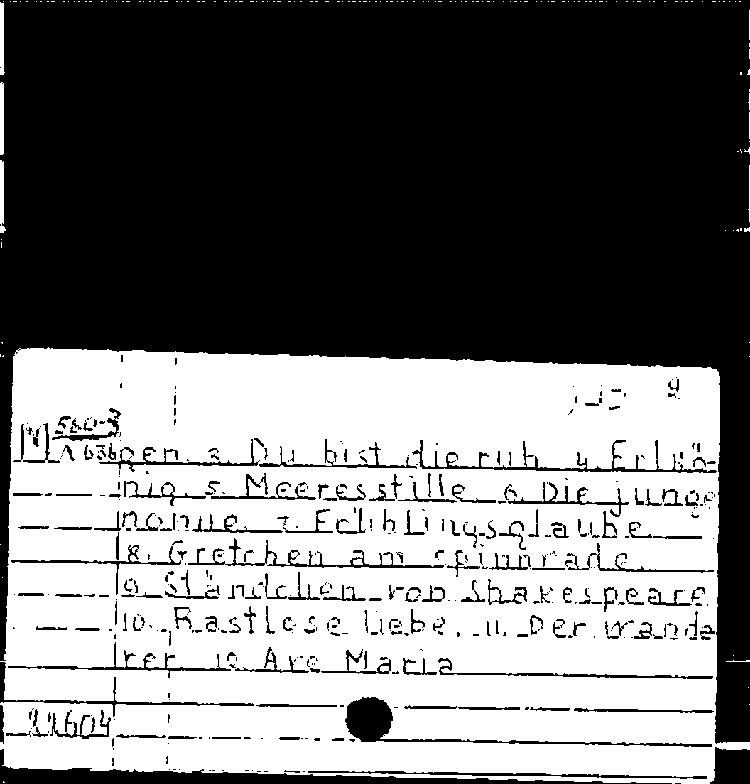 2
M 560-3
gen. 3. Du bist die ruh 4. Erlkö-
nig. 5. Meeresstille 6. Die junge
nonne. 7. Frühlingsglaube
8. Gretchen am spinnrade.
9. Ständchen von Shakespeare
10. Rastlose liebe. 11. Der wande
rer 12 Ave Maria
22604